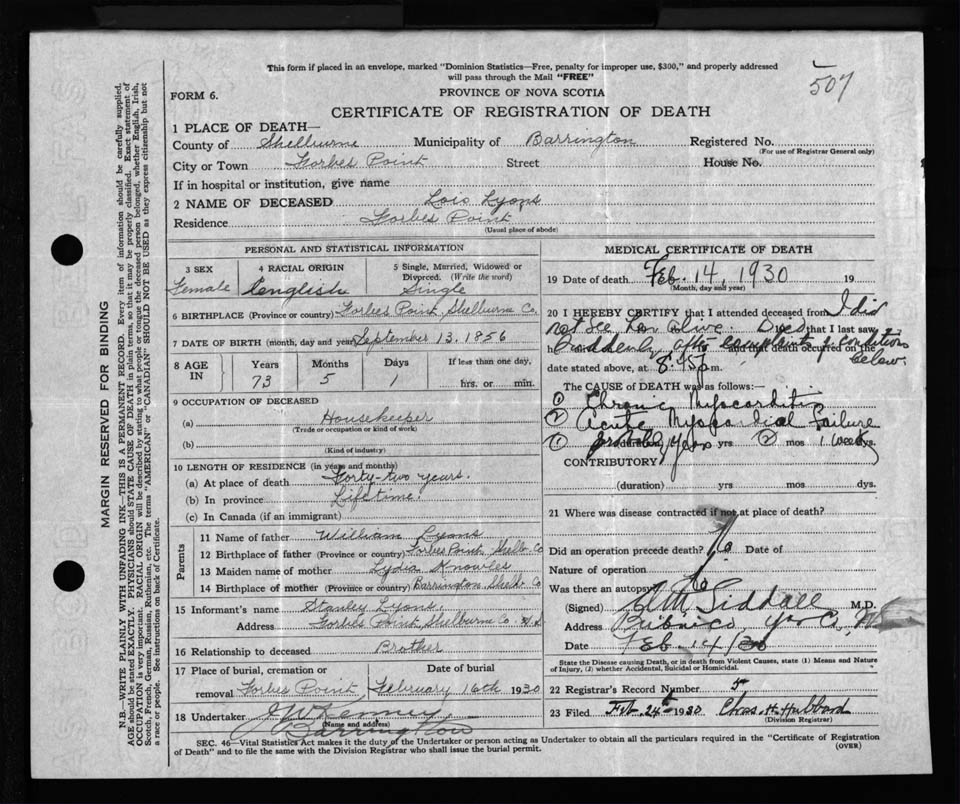 This form if placed in an envelope, marked "Dominion Statistics—Free, penalty for improper use, $300," and properly addressed
will pass through the Mail "FREE"
507
FORM 6.
PROVINCE OF NOVA SCOTIA
CERTIFICATE OF REGISTRATION OF DEATH
1 PLACE OF DEATH—
County of Shelburne Municipality of Barrington Registered No.
(For use of Registrar General only)
City or Town Forbes Point Street House No.
If in hospital or institution, give name
2 NAME OF DECEASED Lois Lyons
Residence Forbes Point
(Usual place of abode)
PERSONAL AND STATISTICAL INFORMATION
3 SEX 4 RACIAL ORIGIN 5 Single, Married, Widowed or
Divorced. (Write the word)
Female English Single
6 BIRTHPLACE (Province or country) Forbes Point, Shelburne Co.
7 DATE OF BIRTH (month, day and year) September 13, 1856
8 AGE IN Years Months Days If less than one day,
73 5 1 hrs. or min.
9 OCCUPATION OF DECEASED
(a) Housekeeper
(Trade or occupation or kind of work)
(b)
(Kind of industry)
10 LENGTH OF RESIDENCE (in years and months)
(a) At place of death Forty-two years.
(b) In province Lifetime.
(c) In Canada (if an immigrant)
Parents
11 Name of father William Lyons
12 Birthplace of father (Province or country) Forbes Point, Shelb. Co
13 Maiden name of mother Lydia Knowles
14 Birthplace of mother (Province or country) Barrington, Shelb. Co
15 Informant's name Stanley Lyons.
Address Forbes Point, Shelburne Co. N.S
16 Relationship to deceased Brother
17 Place of burial, cremation or Date of burial
removal Forbes Point, February 16th 1930
18 Undertaker J W Kenney
(Name and address)
Barrington
MEDICAL CERTIFICATE OF DEATH
19 Date of death Feb. 14, 1930 19
(Month, day and year)
20 I HEREBY CERTIFY that I attended deceased from I did
not see her alive. Died that I last saw
h suddenly after complaints of conditions and that death occurred on the below.
date stated above, at 8.45 p m.
The CAUSE OF DEATH was as follows:—
① Chronic Myocarditis
② Acute Myocardial Failure
① probably years (duration) yrs ② mos 1 week dys.
CONTRIBUTORY
(duration) yrs mos dys.
21 Where was disease contracted if not at place of death?
Did an operation precede death? No Date of
Nature of operation
Was there an autopsy? No
(Signed) A M Siddall M.D.
Address Pubnico, Yar Co, N
Date Feb 14/30
State the Disease causing Death, or in death from Violent Causes, state (1) Means and Nature
of Injury, (2) whether Accidental, Suicidal or Homicidal.
22 Registrar's Record Number 5
23 Filed Feb. 24th 1930 Chas. H. Hubbard
(Division Registrar)
SEC. 46—Vital Statistics Act makes it the duty of the Undertaker or person acting as Undertaker to obtain all the particulars required in the "Certificate of Registration
of Death" and to file the same with the Division Registrar who shall issue the burial permit.
(OVER)
MARGIN RESERVED FOR BINDING
N.B.—WRITE PLAINLY WITH UNFADING INK—THIS IS A PERMANENT RECORD. Every item of information should be carefully supplied.
AGE should be stated EXACTLY. PHYSICIANS should STATE CAUSE OF DEATH in plain terms, so that it may be properly classified. Exact statement of
OCCUPATION is very important. RACIAL ORIGIN will be described by stating to what people or tongue the deceased person belonged, whether English, Irish,
Scotch, French, German, Russian, Ruthenian, etc. The terms "AMERICAN" or "CANADIAN" SHOULD NOT BE USED as they express citizenship but not
a race or people. See instructions on back of Certificate.